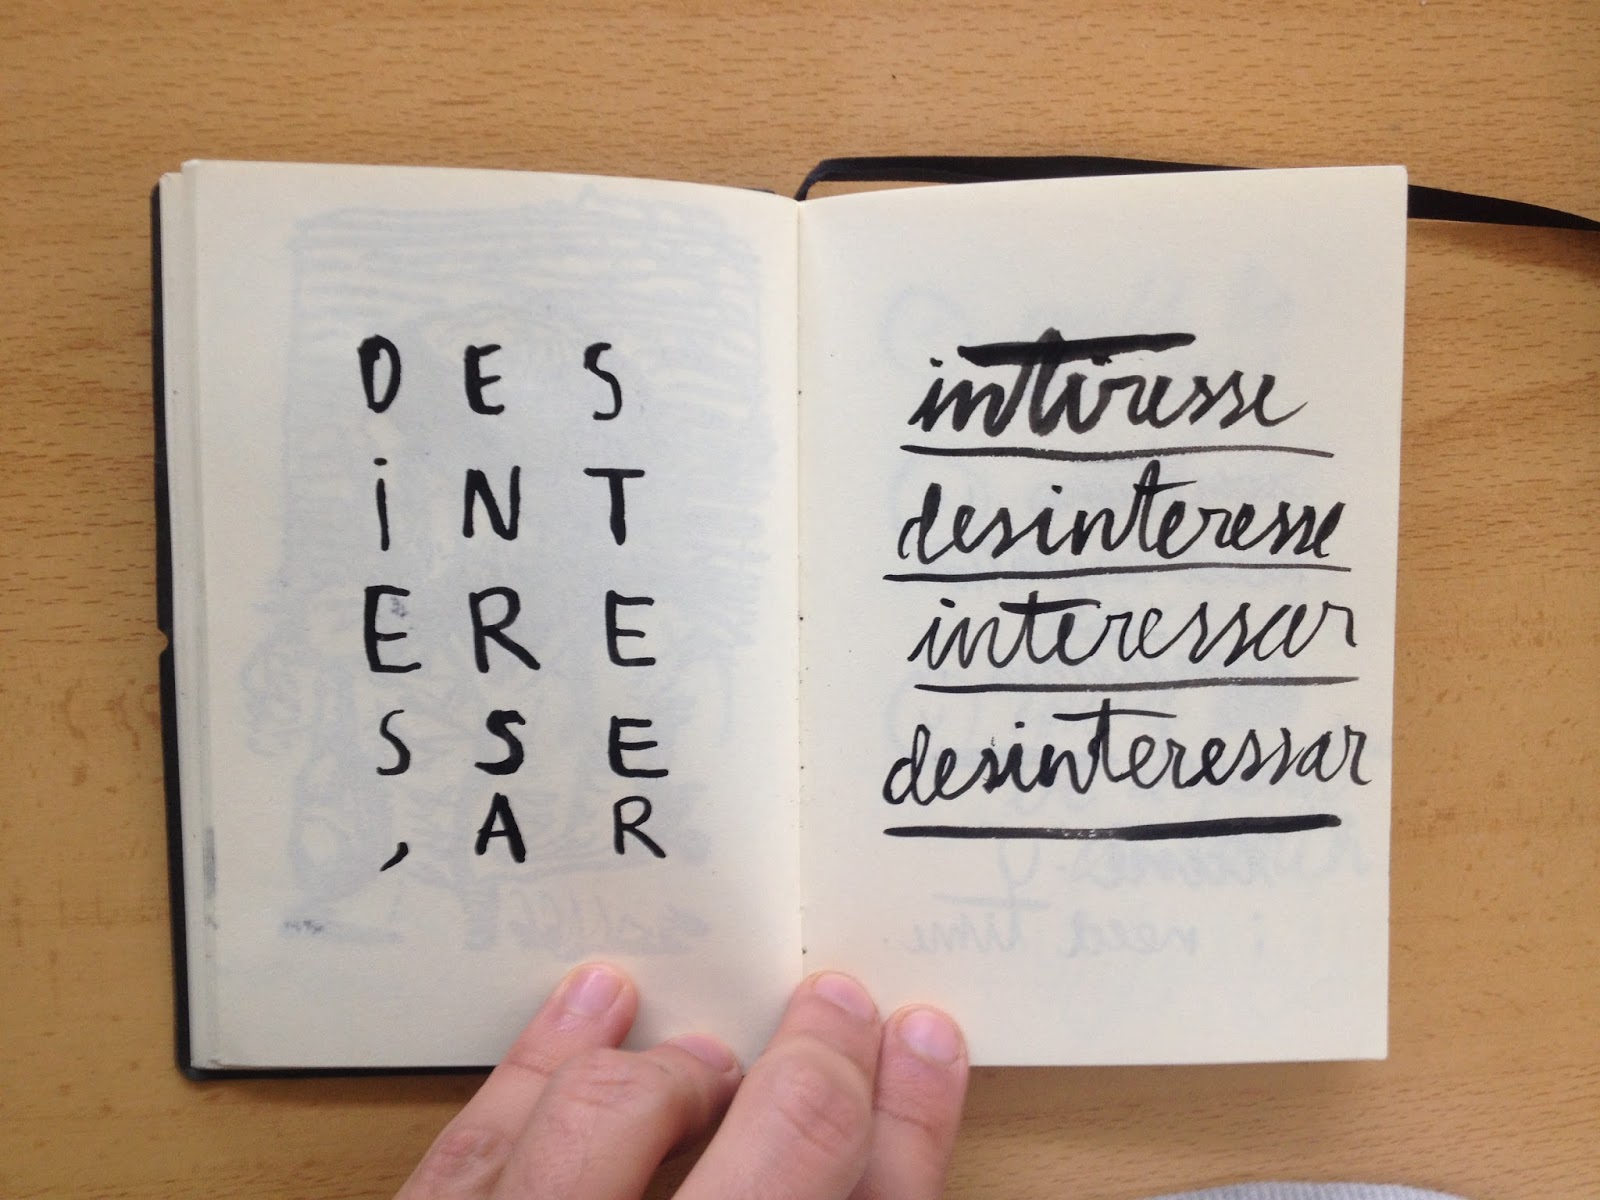 D E S
i N T
E R E
S S E
, A R
interesse
desinteresse
interessar
desinteressar
i need time.